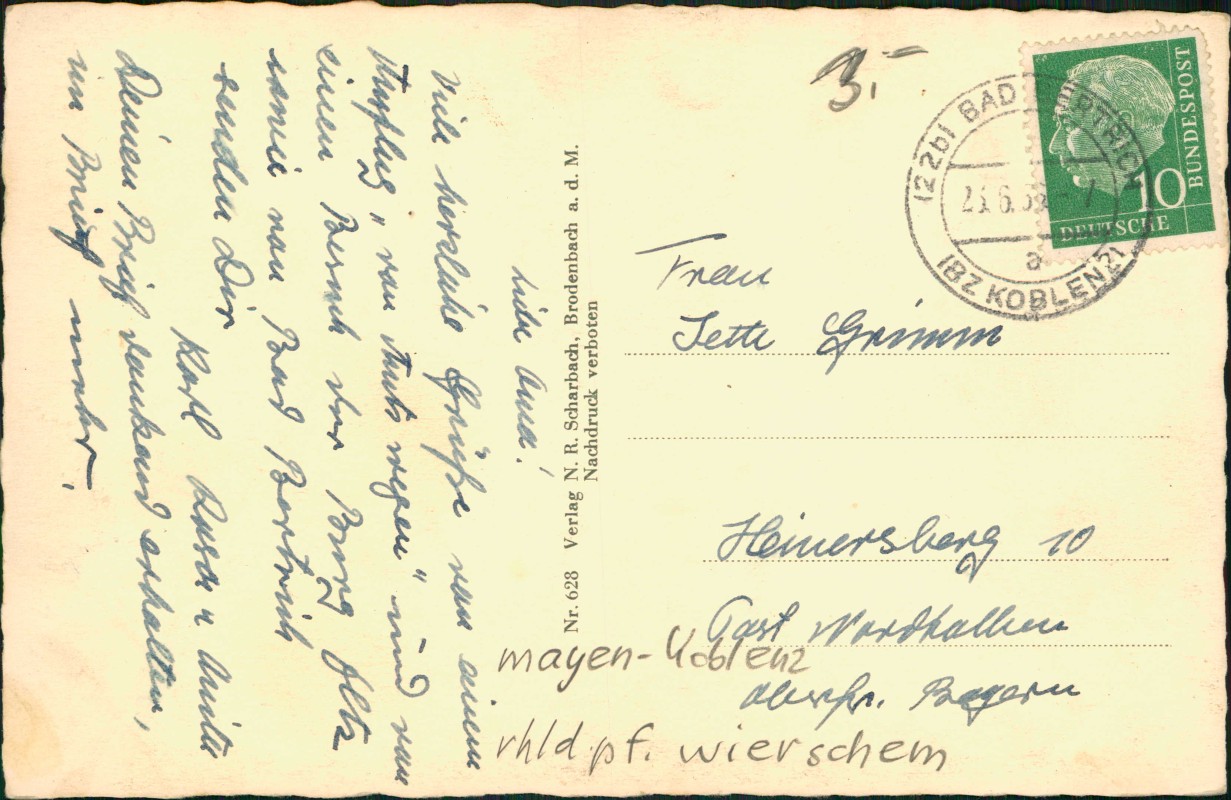 Liebe Anna!
Viele herzliche Grüße von einem
Ausflug „von Amts wegen" und von
einem Besuch der Burg Eltz
sowie von Bad Bertrich
senden Dir
Karl Luise u Anita
Deinen Brief dankend erhalten,
im Brief mehr.
Nr. 628 Verlag N. R. Scharbach, Brodenbach a. d. M.
Nachdruck verboten
3.-
(22b) BAD BERTRICH
23.6.58
a
(BZ KOBLENZ)
DEUTSCHE BUNDESPOST
10
Frau
Jette Grimm
Heinersberg 10
Post Nordhalben
Oberfr. Bayern
mayen-Koblenz
rhld.pf. wierschem